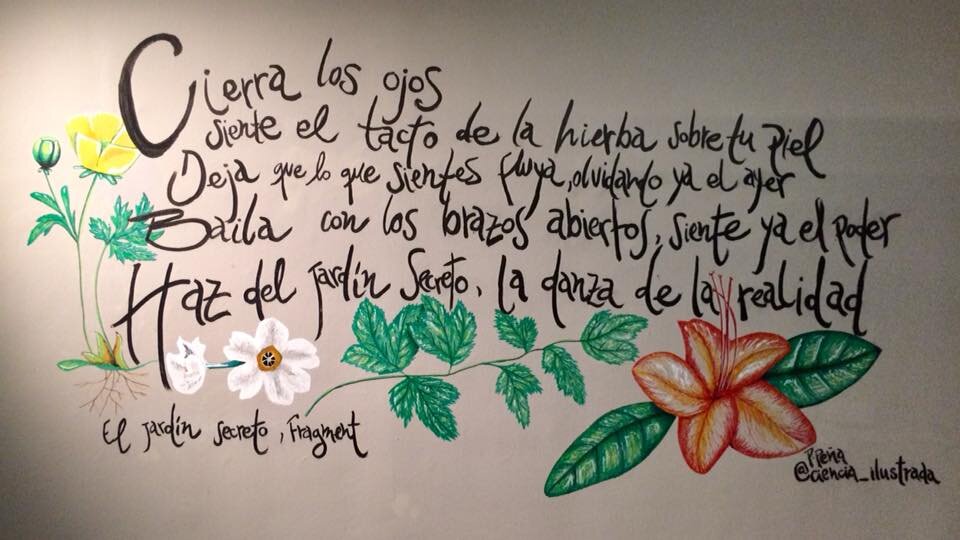 Cierra los ojos
siente el tacto de la hierba sobre tu piel
Deja que lo que sientes fluya, olvidando ya el ayer
Baila con los brazos abiertos, siente ya el poder
Haz del jardín secreto, la danza de la realidad
El jardín secreto, Fragment
P Peña
@ciencia_ilustrada